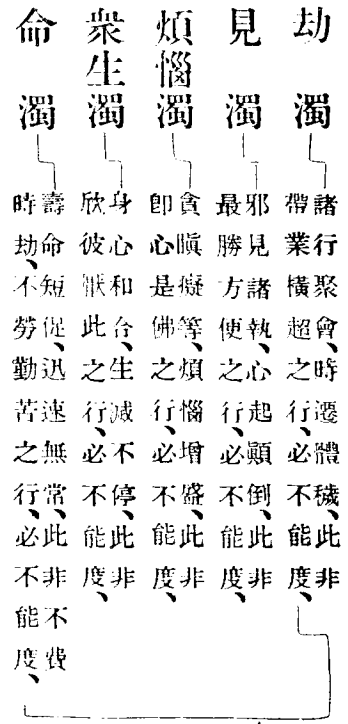 劫濁
諸行聚會、時遷體穢、此非
帶業橫超之行、必不能度、
見濁
邪見諸執、心起顚倒、此非
最勝方便之行、必不能度、
煩惱濁
貪瞋癡等、煩惱增盛、此非
卽心是佛之行、必不能度、
衆生濁
身心和合、生滅不停、此非
欣彼猒此之行、必不能度、
命濁
壽命短促、迅速無常、此非不費
時劫、不勞勤苦之行、必不能度、